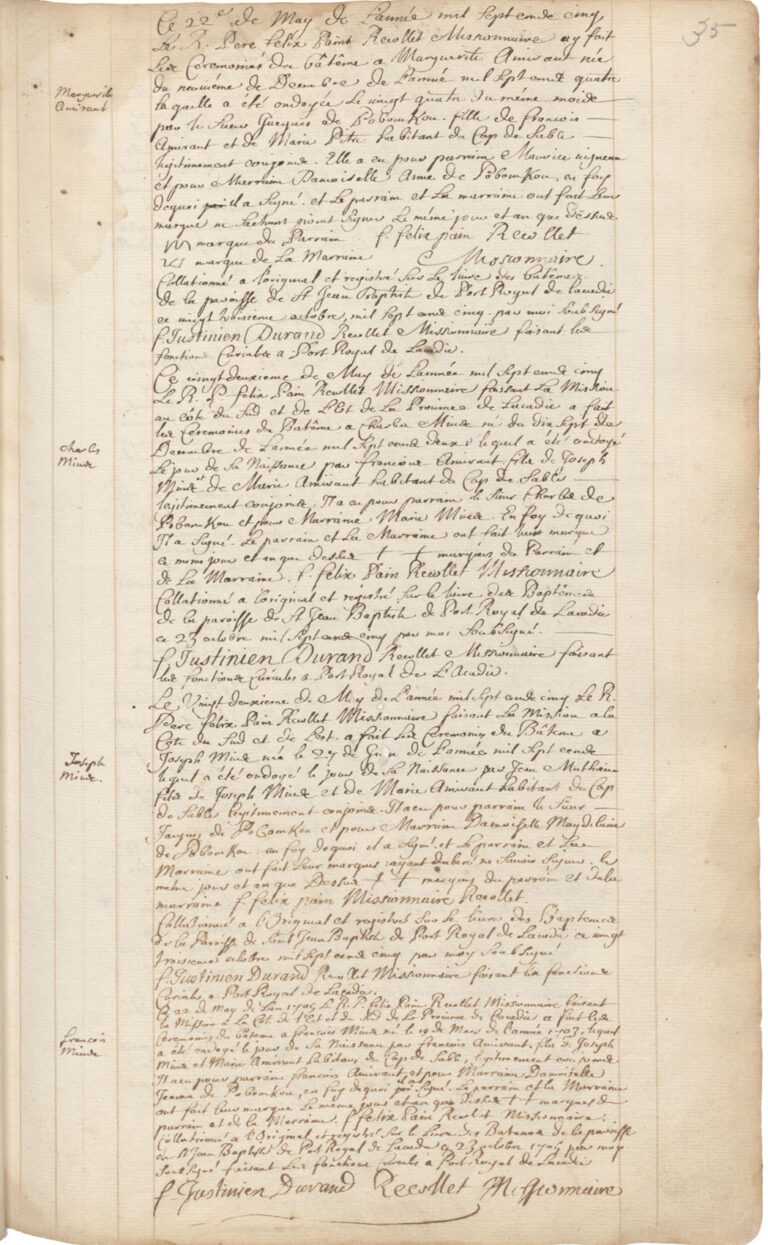 35
Ce 22e de May de L'année mil sept cents cinq
Le R. Pere felix Paint Recollet Missionnaire ay fait
Les Ceremonies du bâtême a Marguerite Amirant née
du neuvième de Decembre de L'année mil sept cents quatre
Marguerite
Amirant
laquelle a été ondoyée le vingt quatre du même mois
par le Sieur Jacques de Pobomkou. fille de francois
Amirant et de Marie Pitre habitant du Cap de Sable
légitimement conjoinds. Elle a eu pour parrain Maurice
et pour Marraine Damoiselle Anne de Pobomkou, en foy
dequoi il a Signé. et Le parrain et La marraine ont fait leur
marque ne Sachant Signer Le même jour et an que dessus.
marque du Parrain f. felix pain Recollet
marque de La Marraine Missionnaire.
Collationné a l'original et registré Sur Le livre des batêmes
de la paroisse de St Jean Baptiste du Port Royal de lacadie
ce vingt troisieme octobre, mil sept cents cinq. par moi Soub Signé
f. Justinien Durand Recollet Missionnaire faisant les
fonctions Curiales a Port Royal de Lacadie.
Ce vingt deuxieme de May de L'année mil sept cents cinq
Le R. P. felix Pain Recollet Missionnaire faisant La Mission
au côte du Sud et de L'Est de La Province de Lacadie a fait
les Ceremonies du Batême a Charles Miude né du dix Sept de
Decembre de L'année mil Sept cents deux, lequel a été ondoyé
Charles
Miude
Le jour de Sa Naissance par francois Amirant fils de Joseph
Miude et de Marie Amirant habitant du Cap de Sable
legitimement conjoinds, Il a eu pour parrain le Sieur Charles de
Pobomkou et pour Marraine Marie Miude. En foy de quoi
Il a Signé. Le parrain et La Marraine ont fait leur marque
ce même jour et an que dessus + + marques du Parrain et
de La Marraine. f. felix Pain Recollet Missionnaire
Collationné a L'original et régistré Sur le livre des Baptêmes
de la paroisse de St Jean Baptiste de Port Royal de Lacadie
ce 23 octobre mil Sept cents cinq par moi Soub Signé.
f. Justinien Durand Recollet Missionnaire faisant
les fonctions Curiales a Port Royal de L'Acadie.
Le Vingt deuxieme de May de L'année mil Sept cents cinq Le R.
Pere felix Pain Recollet Missionnaire faisant La Mission a la
Côte du Sud et de L'est. a fait les Ceremonies du Bâteme a
Joseph
Miude.
Joseph Miude née le 27 de Juin de L'année mil Sept cents
lequel a été ondoyé le jour de Sa Naissance par Jean
fils de Joseph Miude et de Marie Amirant habitant du Cap
de Sable legitimement conjoinds. Il a eu pour parrain le Sieur
Jacques de PoBomkou et pour Marraine Damoiselle Magdelaine
de Pobomkou: en foy dequoi il a Signé. et Le parrain et La
Marraine ont fait leur marques: ayant ne Scavoir Signer. le
même jour et an que Dessus + + marques du parrain et de la
marraine f. felix pain Missionnaire Recollet.
Collationné a L'Original et registré Sur Le livre des Baptemes
de la Paroisse de Saint Jean Baptiste de Port Royal de Lacadie ce vingt
troisieme octobre mil Sept cents cinq par moy Soub Signé
f. Justinien Durand Recollet Missionnaire faisant les fonctions
Curiales a Port Royal de Lacadie.
Ce 22 de May de L'an 1705 Le R. P. felix Pain Recollet Missionnaire faisant
La Mission a La Côte de L'Est et du Sud de La Province de Lacadie a fait les
francois
Miude
Ceremonies du Batême a francois Miude né le 19 de Mars de L'année 1703, lequel
a été ondoyé le jour de Sa Naissance par francois Amirant. fils de Joseph
Miude et Marie Amirant habitans du Cap de Sable, legitimement conjoinds.
Il a eu pour parrain francois Amirant, et pour Marraine Damoiselle
Jeanne de Pobomkou, en foy dequoi il a Signé. Le parrain et La Marraine
ont fait leur marque Le même jour et an que dessus + + marques du
parrain et de la Marraine. f. felix Pain Recollet Missionnaire.
Collationné a l'Original et registré Sur Le Livre des Batemes de la paroisse
de St Jean Baptiste de Port Royal de Lacadie ce 23 octobre 1705 par moy
Soub Signé faisant Les fonctions Curiales a Port Royal de Lacadie
f. Justinien Durand Recollet Missionnaire